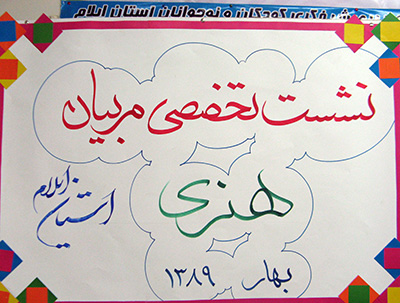 پرورش فکری کودکان و نوجوانان استان ایلام
نشست تخصصی مربیان
هنری
استان ایلام
بهار ۱۳۸۹